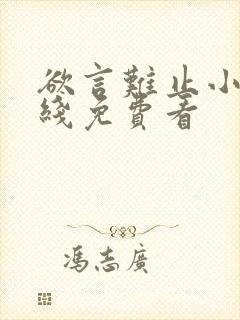 欲言難止小
綫免費看
馮志廣